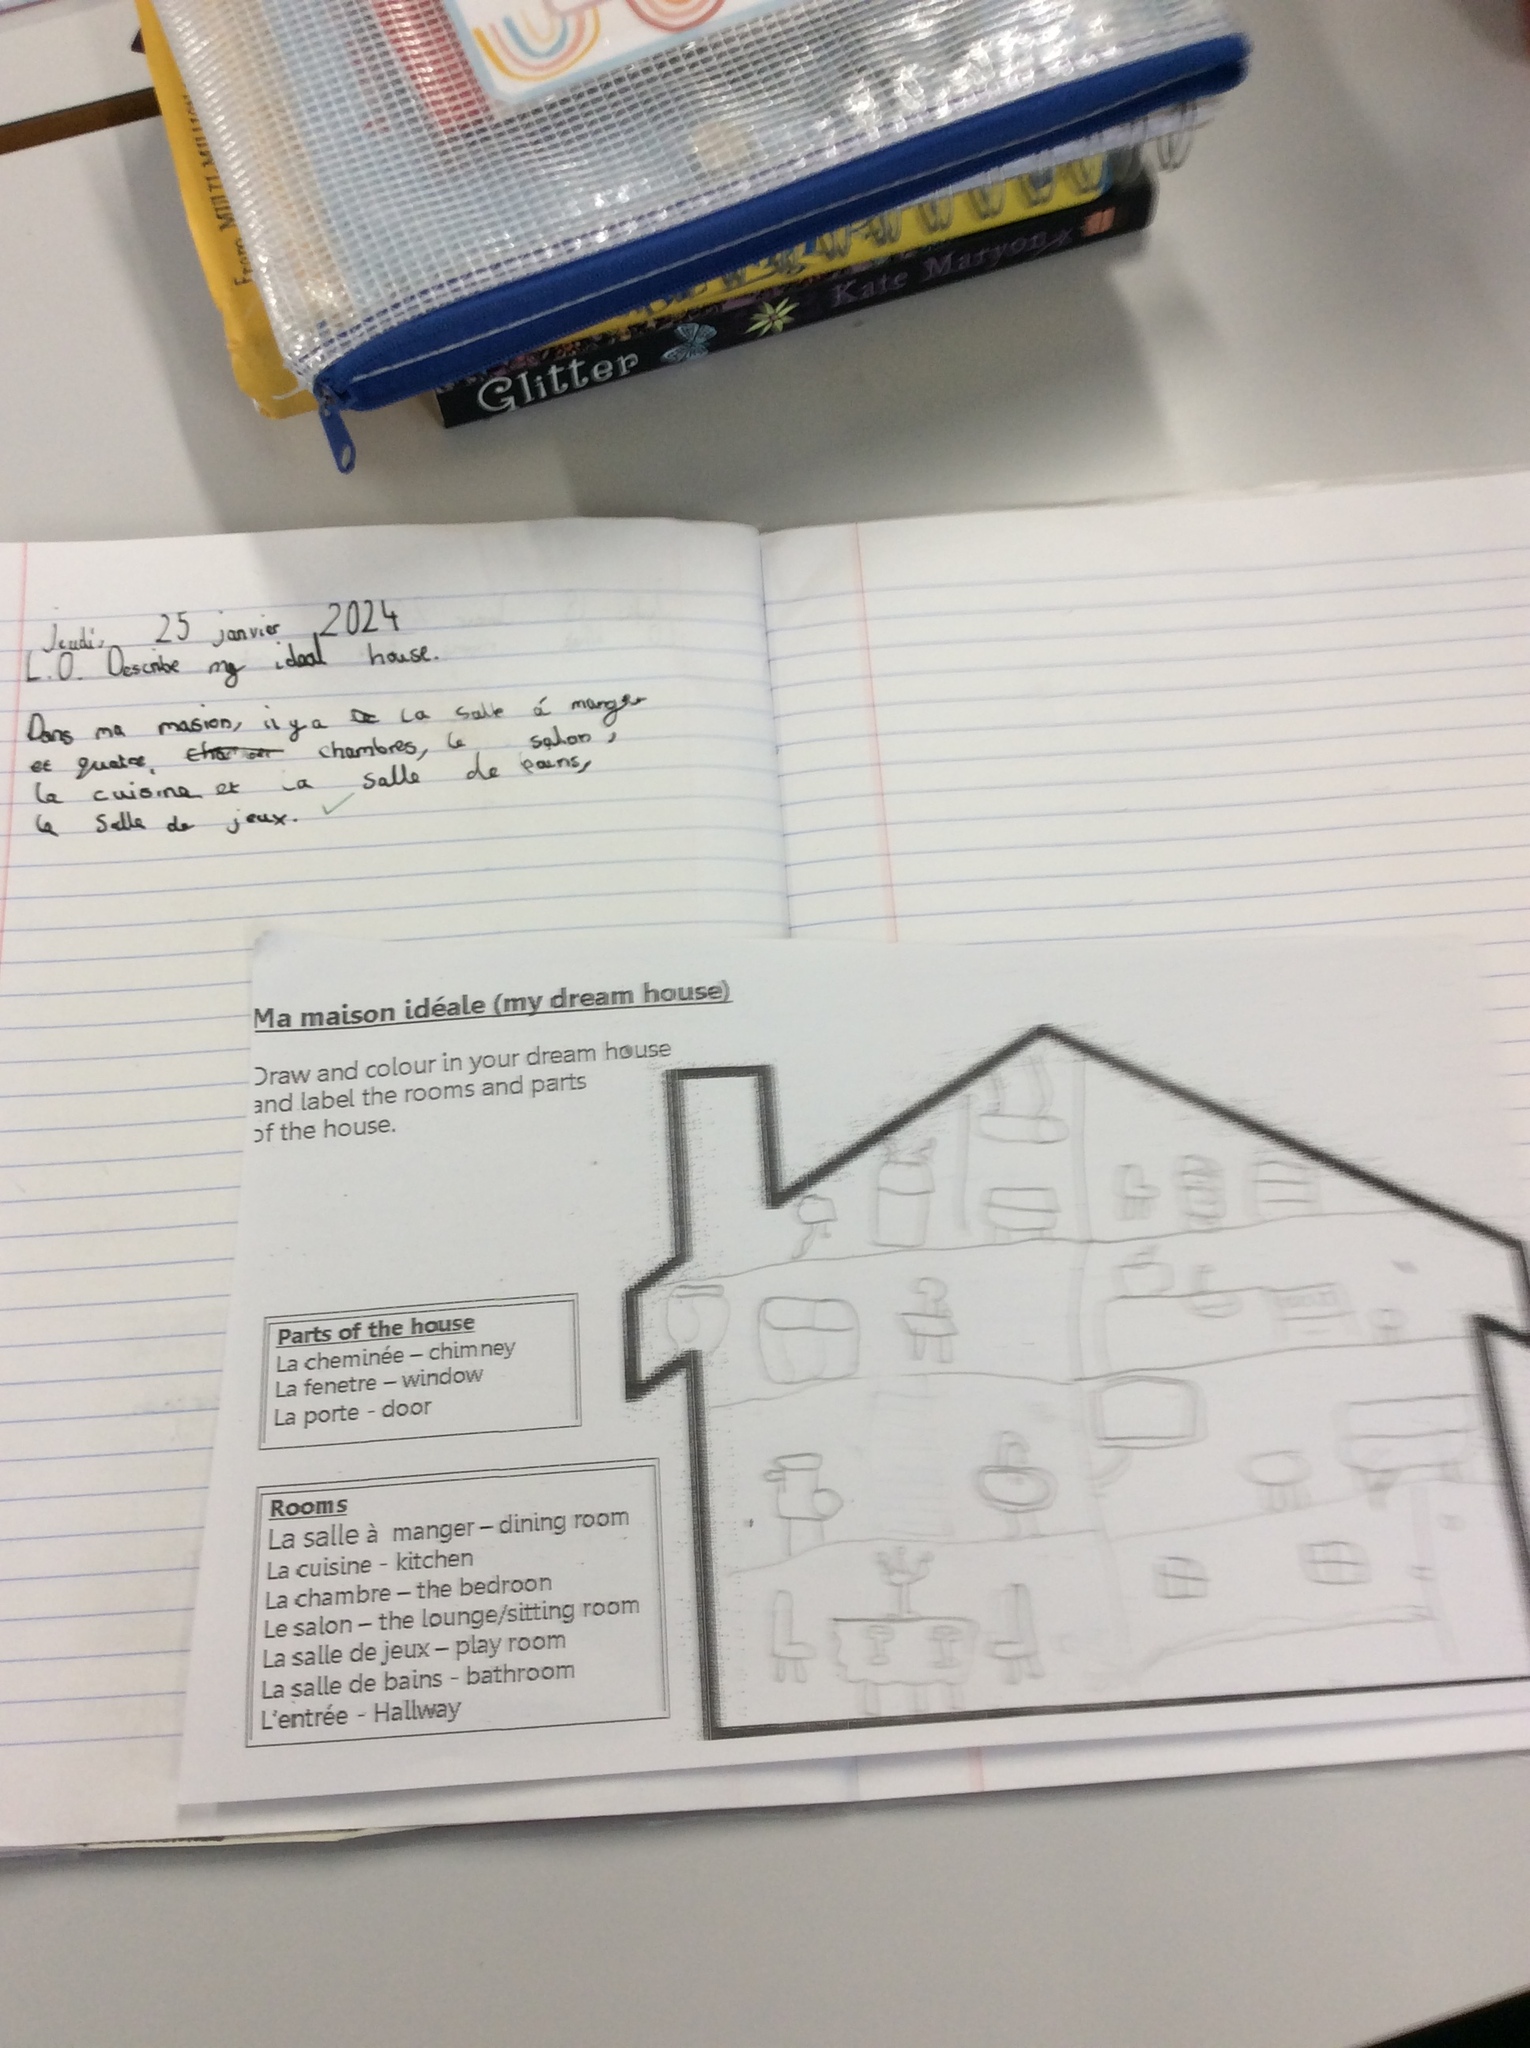 From MULTI-MILLION
Glitter Kate Maryon
Jeudi, 25 janvier 2024
L.O. Describe my ideal house.
Dans ma masion, il y a la salle á manger
et quatre, chambres, le salon,
la cuisine et la salle de bains,
la salle de jeux.
Ma maison idéale (my dream house)
Draw and colour in your dream house
and label the rooms and parts
of the house.
Parts of the house
La cheminée – chimney
La fenetre – window
La porte - door
Rooms
La salle à manger – dining room
La cuisine - kitchen
La chambre – the bedroon
Le salon – the lounge/sitting room
La salle de jeux – play room
La salle de bains - bathroom
L'entrée - Hallway